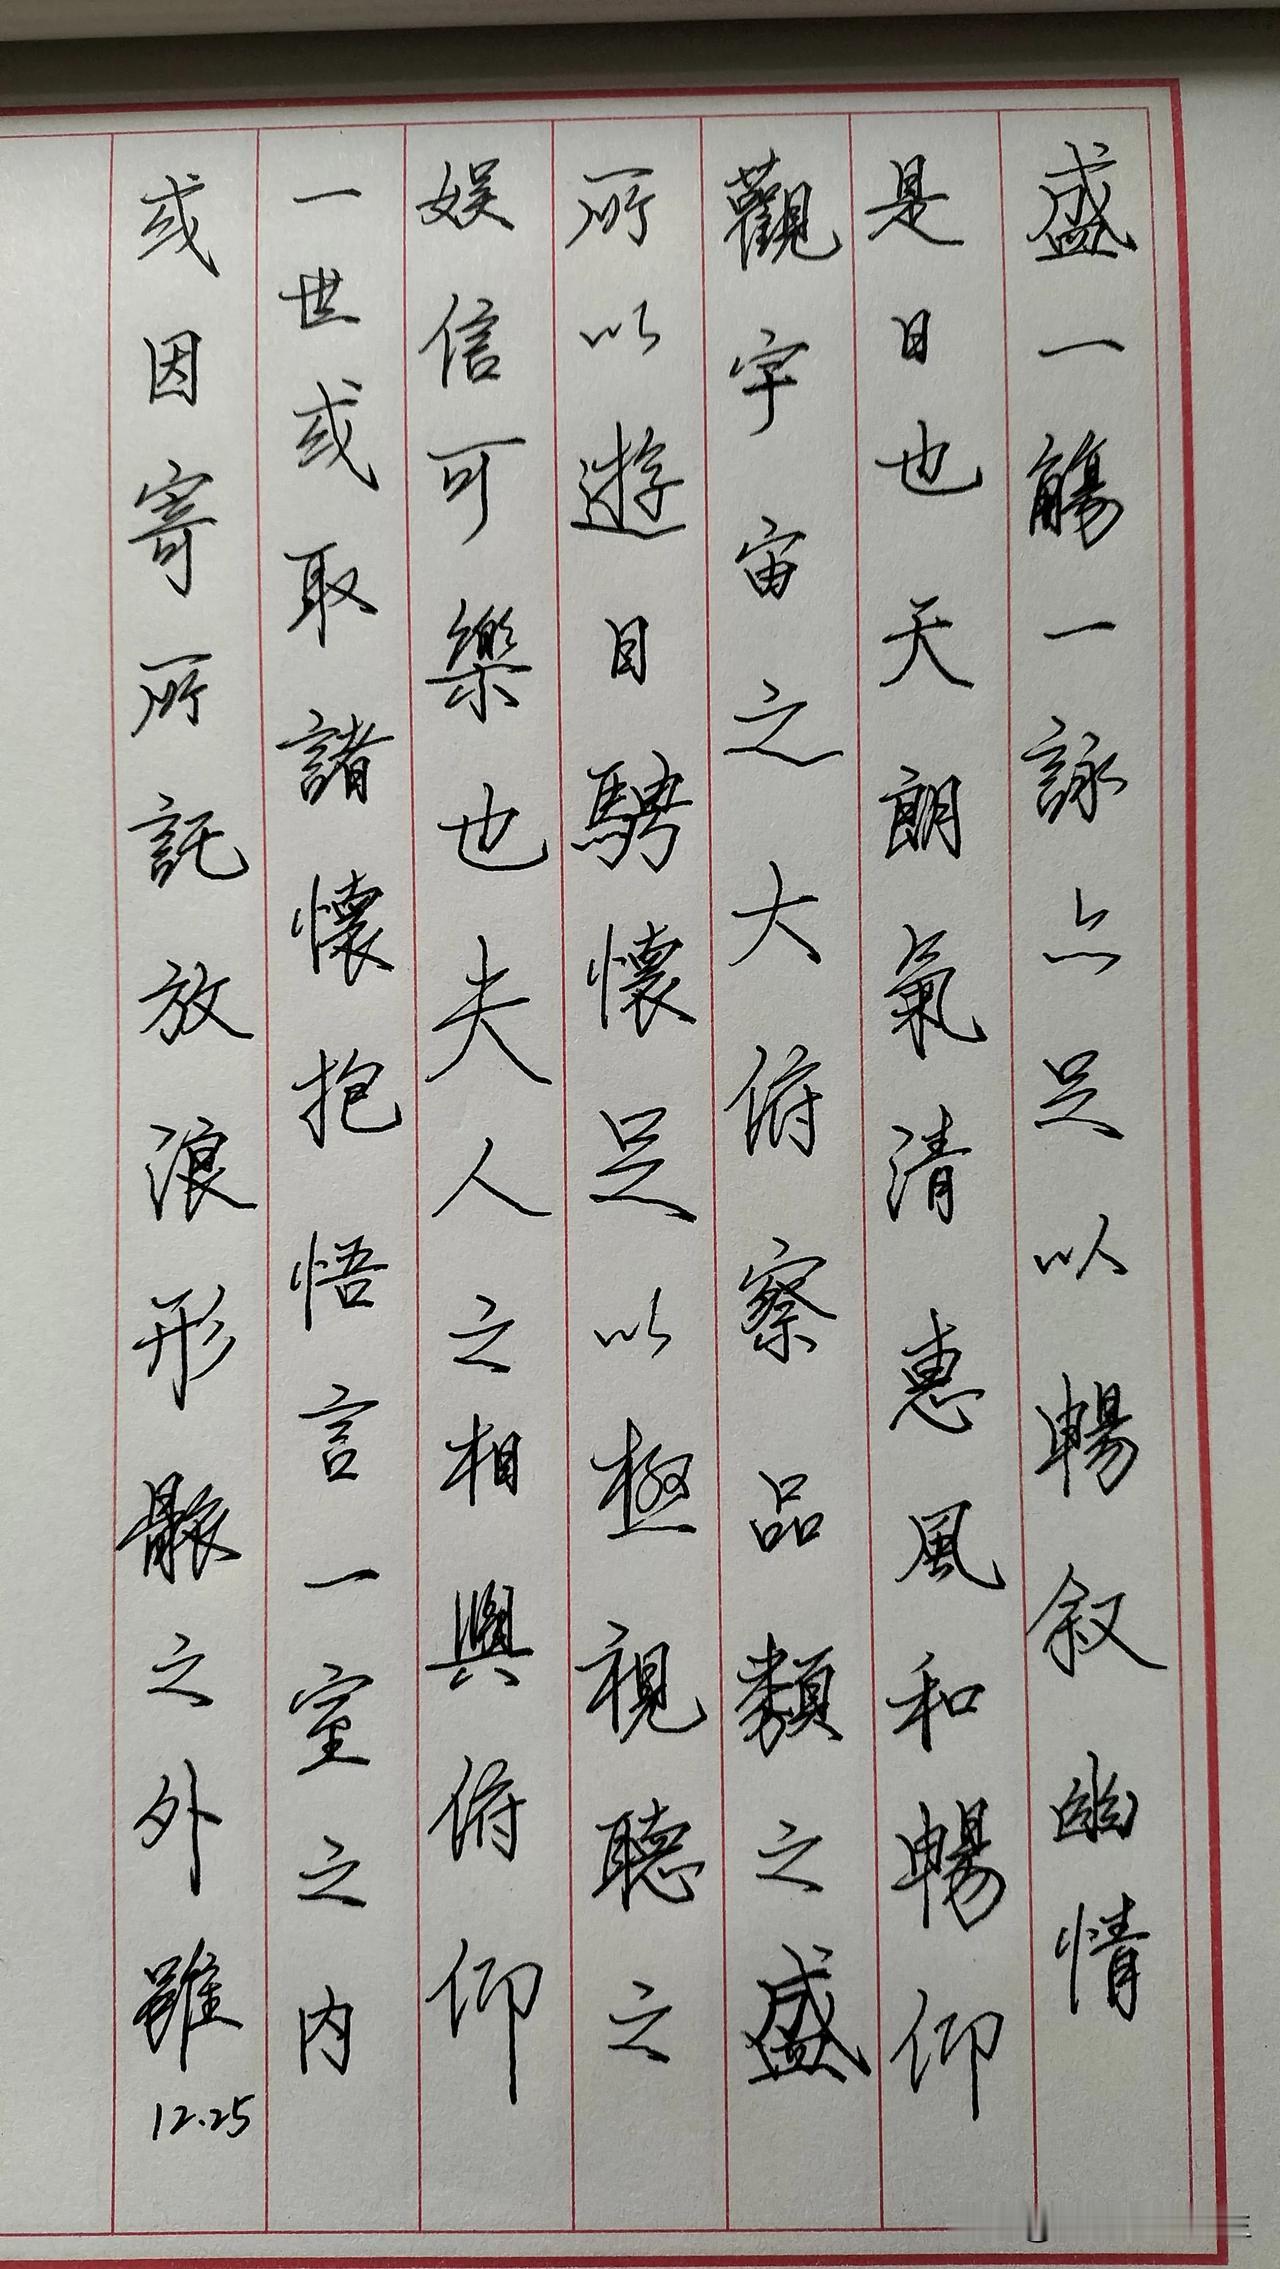 盛一觴一詠亦足以暢叙幽情
是日也天朗氣清惠風和暢仰
觀宇宙之大俯察品類之盛
所以遊目騁懷足以極視聽之
娱信可樂也夫人之相與俯仰
一世或取諸懷抱悟言一室之内
或因寄所託放浪形骸之外雖
12.25